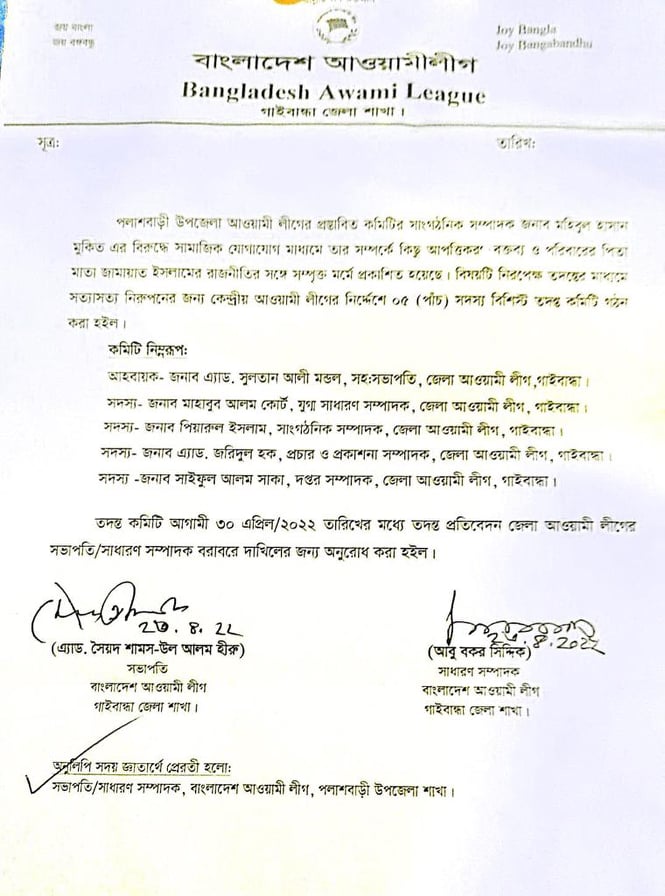 জয় বাংলা
জয় বঙ্গবন্ধু
Joy Bangla
Joy Bangabandhu
বাংলাদেশ আওয়ামীলীগ
Bangladesh Awami League
গাইবান্ধা জেলা শাখা।
সূত্র:
তারিখ:
পলাশবাড়ী উপজেলা আওয়ামী লীগের প্রস্তাবিত কমিটির সাংগঠনিক সম্পাদক জনাব মহিবুল হাসান
মুকিত এর বিরুদ্ধে সামাজিক যোগাযোগ মাধ্যমে তার সম্পর্কে কিছু আপত্তিকর বক্তব্য ও পরিবারের পিতা
মাতা জামায়াত ইসলামের রাজনীতির সঙ্গে সম্পৃক্ত মর্মে প্রকাশিত হয়েছে। বিষয়টি নিরপেক্ষ তদন্তের মাধ্যমে
সত্যাসত্য নিরুপনের জন্য কেন্দ্রীয় আওয়ামী লীগের নির্দেশে ০৫ (পাঁচ) সদস্য বিশিস্ট তদন্ত কমিটি গঠন
করা হইল।
কমিটি নিম্নরূপ:
আহবায়ক- জনাব এ্যাড. সুলতান আলী মন্ডল, সহ:সভাপতি, জেলা আওয়ামী লীগ,গাইবান্ধা।
সদস্য- জনাব মাহাবুব আলম কোর্ট, যুগ্ম সাধারণ সম্পাদক, জেলা আওয়ামী লীগ, গাইবান্ধা।
সদস্য- জনাব পিয়ারুল ইসলাম, সাংগঠনিক সম্পাদক, জেলা আওয়ামী লীগ, গাইবান্ধা।
সদস্য- জনাব এ্যাড. জরিদুল হক, প্রচার ও প্রকাশনা সম্পাদক, জেলা আওয়ামী লীগ, গাইবান্ধা।
সদস্য -জনাব সাইফুল আলম সাকা, দপ্তর সম্পাদক, জেলা আওয়ামী লীগ, গাইবান্ধা।
তদন্ত কমিটি আগামী ৩০ এপ্রিল/২০২২ তারিখের মধ্যে তদন্ত প্রতিবেদন জেলা আওয়ামী লীগের
সভাপতি/সাধারণ সম্পাদক বরাবরে দাখিলের জন্য অনুরোধ করা হইল।
২৩.৪.২২
(এ্যাড. সৈয়দ শামস-উল আলম হীরু)
সভাপতি
বাংলাদেশ আওয়ামী লীগ
গাইবান্ধা জেলা শাখা।
(আবু বকর সিদ্দিক)
সাধারণ সম্পাদক
বাংলাদেশ আওয়ামী লীগ
গাইবান্ধা জেলা শাখা।
অনুলিপি সদয় জ্ঞাতার্থে প্রেরতী হলো:
সভাপতি/সাধারণ সম্পাদক, বাংলাদেশ আওয়ামী লীগ, পলাশবাড়ী উপজেলা শাখা।